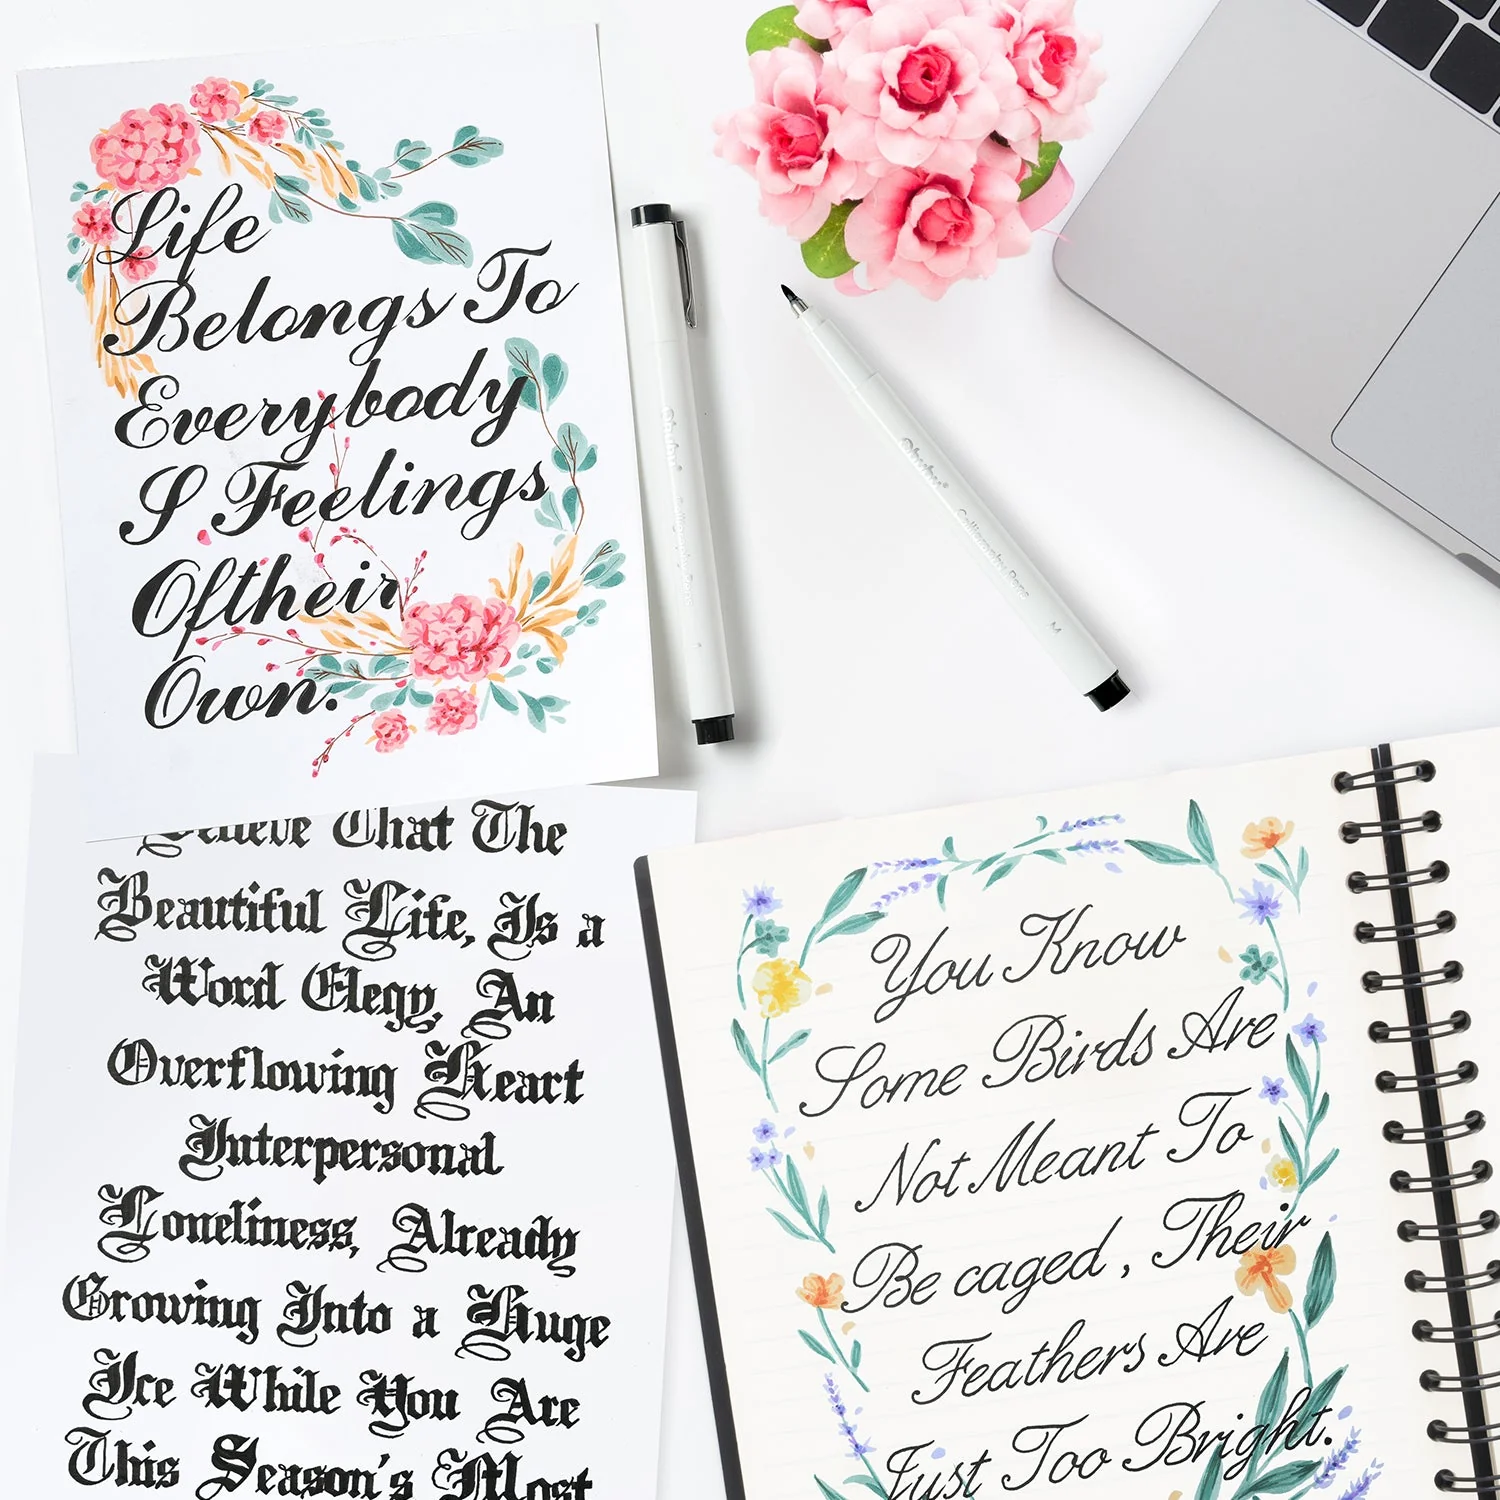 Life
Belongs To
Everybody
I Feelings
Oftheir
Own.
Believe That The
Beautiful Life, Is a
Word Elegy, An
Overflowing Heart
Interpersonal
Loneliness, Already
Growing Into a Huge
Ice While You Are
This Season's Most
You Know
Some Birds Are
Not Meant To
Be caged, Their
Feathers Are
Just Too Bright.
Ohuhu®
Calligraphy Pens
Ohuhu®
Calligraphy Pens
M